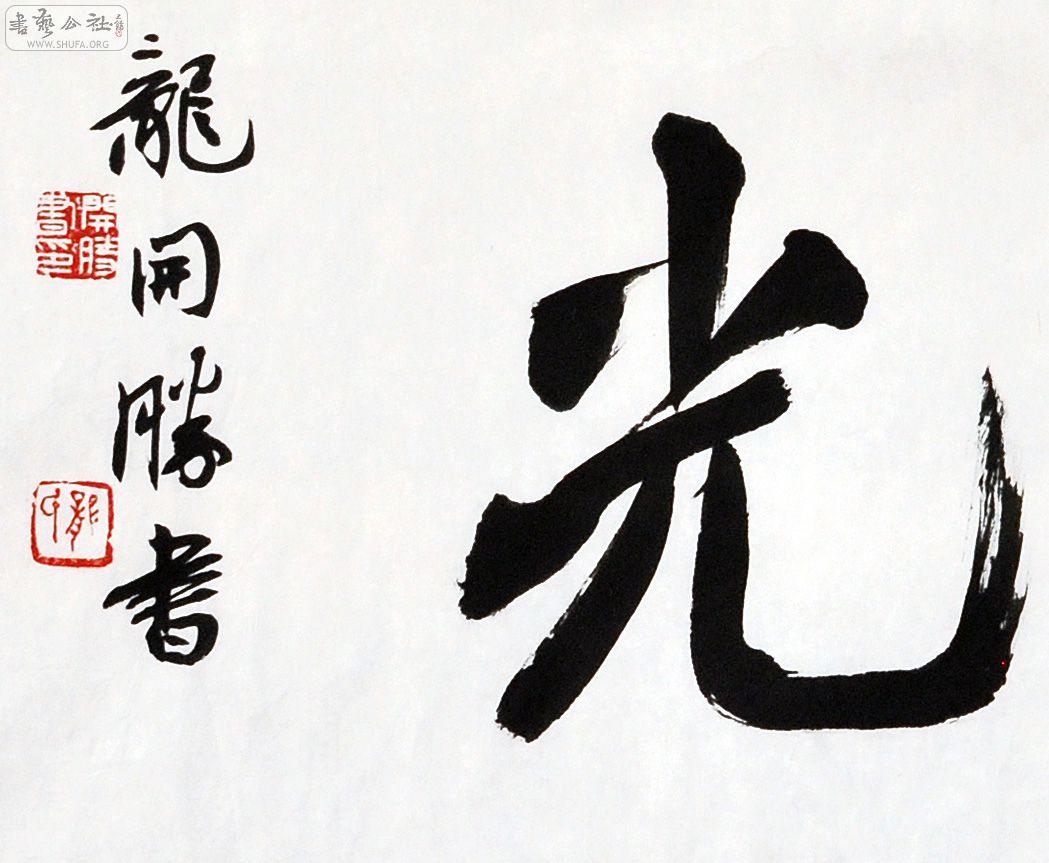 書藝公社
WWW.SHUFA.ORG
光
龍開勝書
開勝
書印